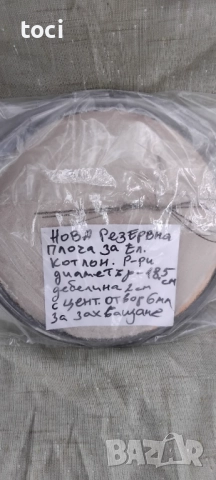 toci
НОВА РЕЗЕРВНА
ПЛОЧА ЗА ЕЛ.
КОТЛОН. Р-РИ
ДИАМЕТЪР-18,5 СМ
ДЕБЕЛИНА 2 СМ
С ЦЕНТ. ОТВОР 6МЛ
ЗА ЗАХВАЩАНЕ
BAZAR